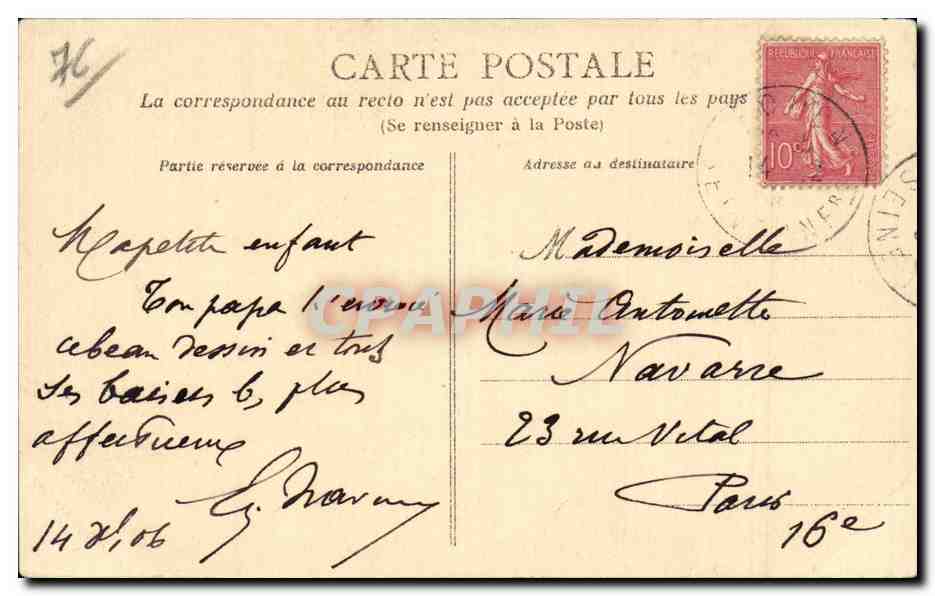 76
CARTE POSTALE
La correspondance au recto n'est pas acceptée par tous les pays
(Se renseigner à la Poste)
Partie réservée à la correspondance
Adresse au destinataire
REPUBLIQUE FRANÇAISE
10c
SEINE
Ma petite enfant
Ton papa t'envoie
ce beau dessin et tous
ses baisers les plus
affectueux
Eg. Navarre
14 Xbre 06
Mademoiselle
Marie Antoinette
Navarre
23 rue Vital
Paris
16e
CPAPHIL